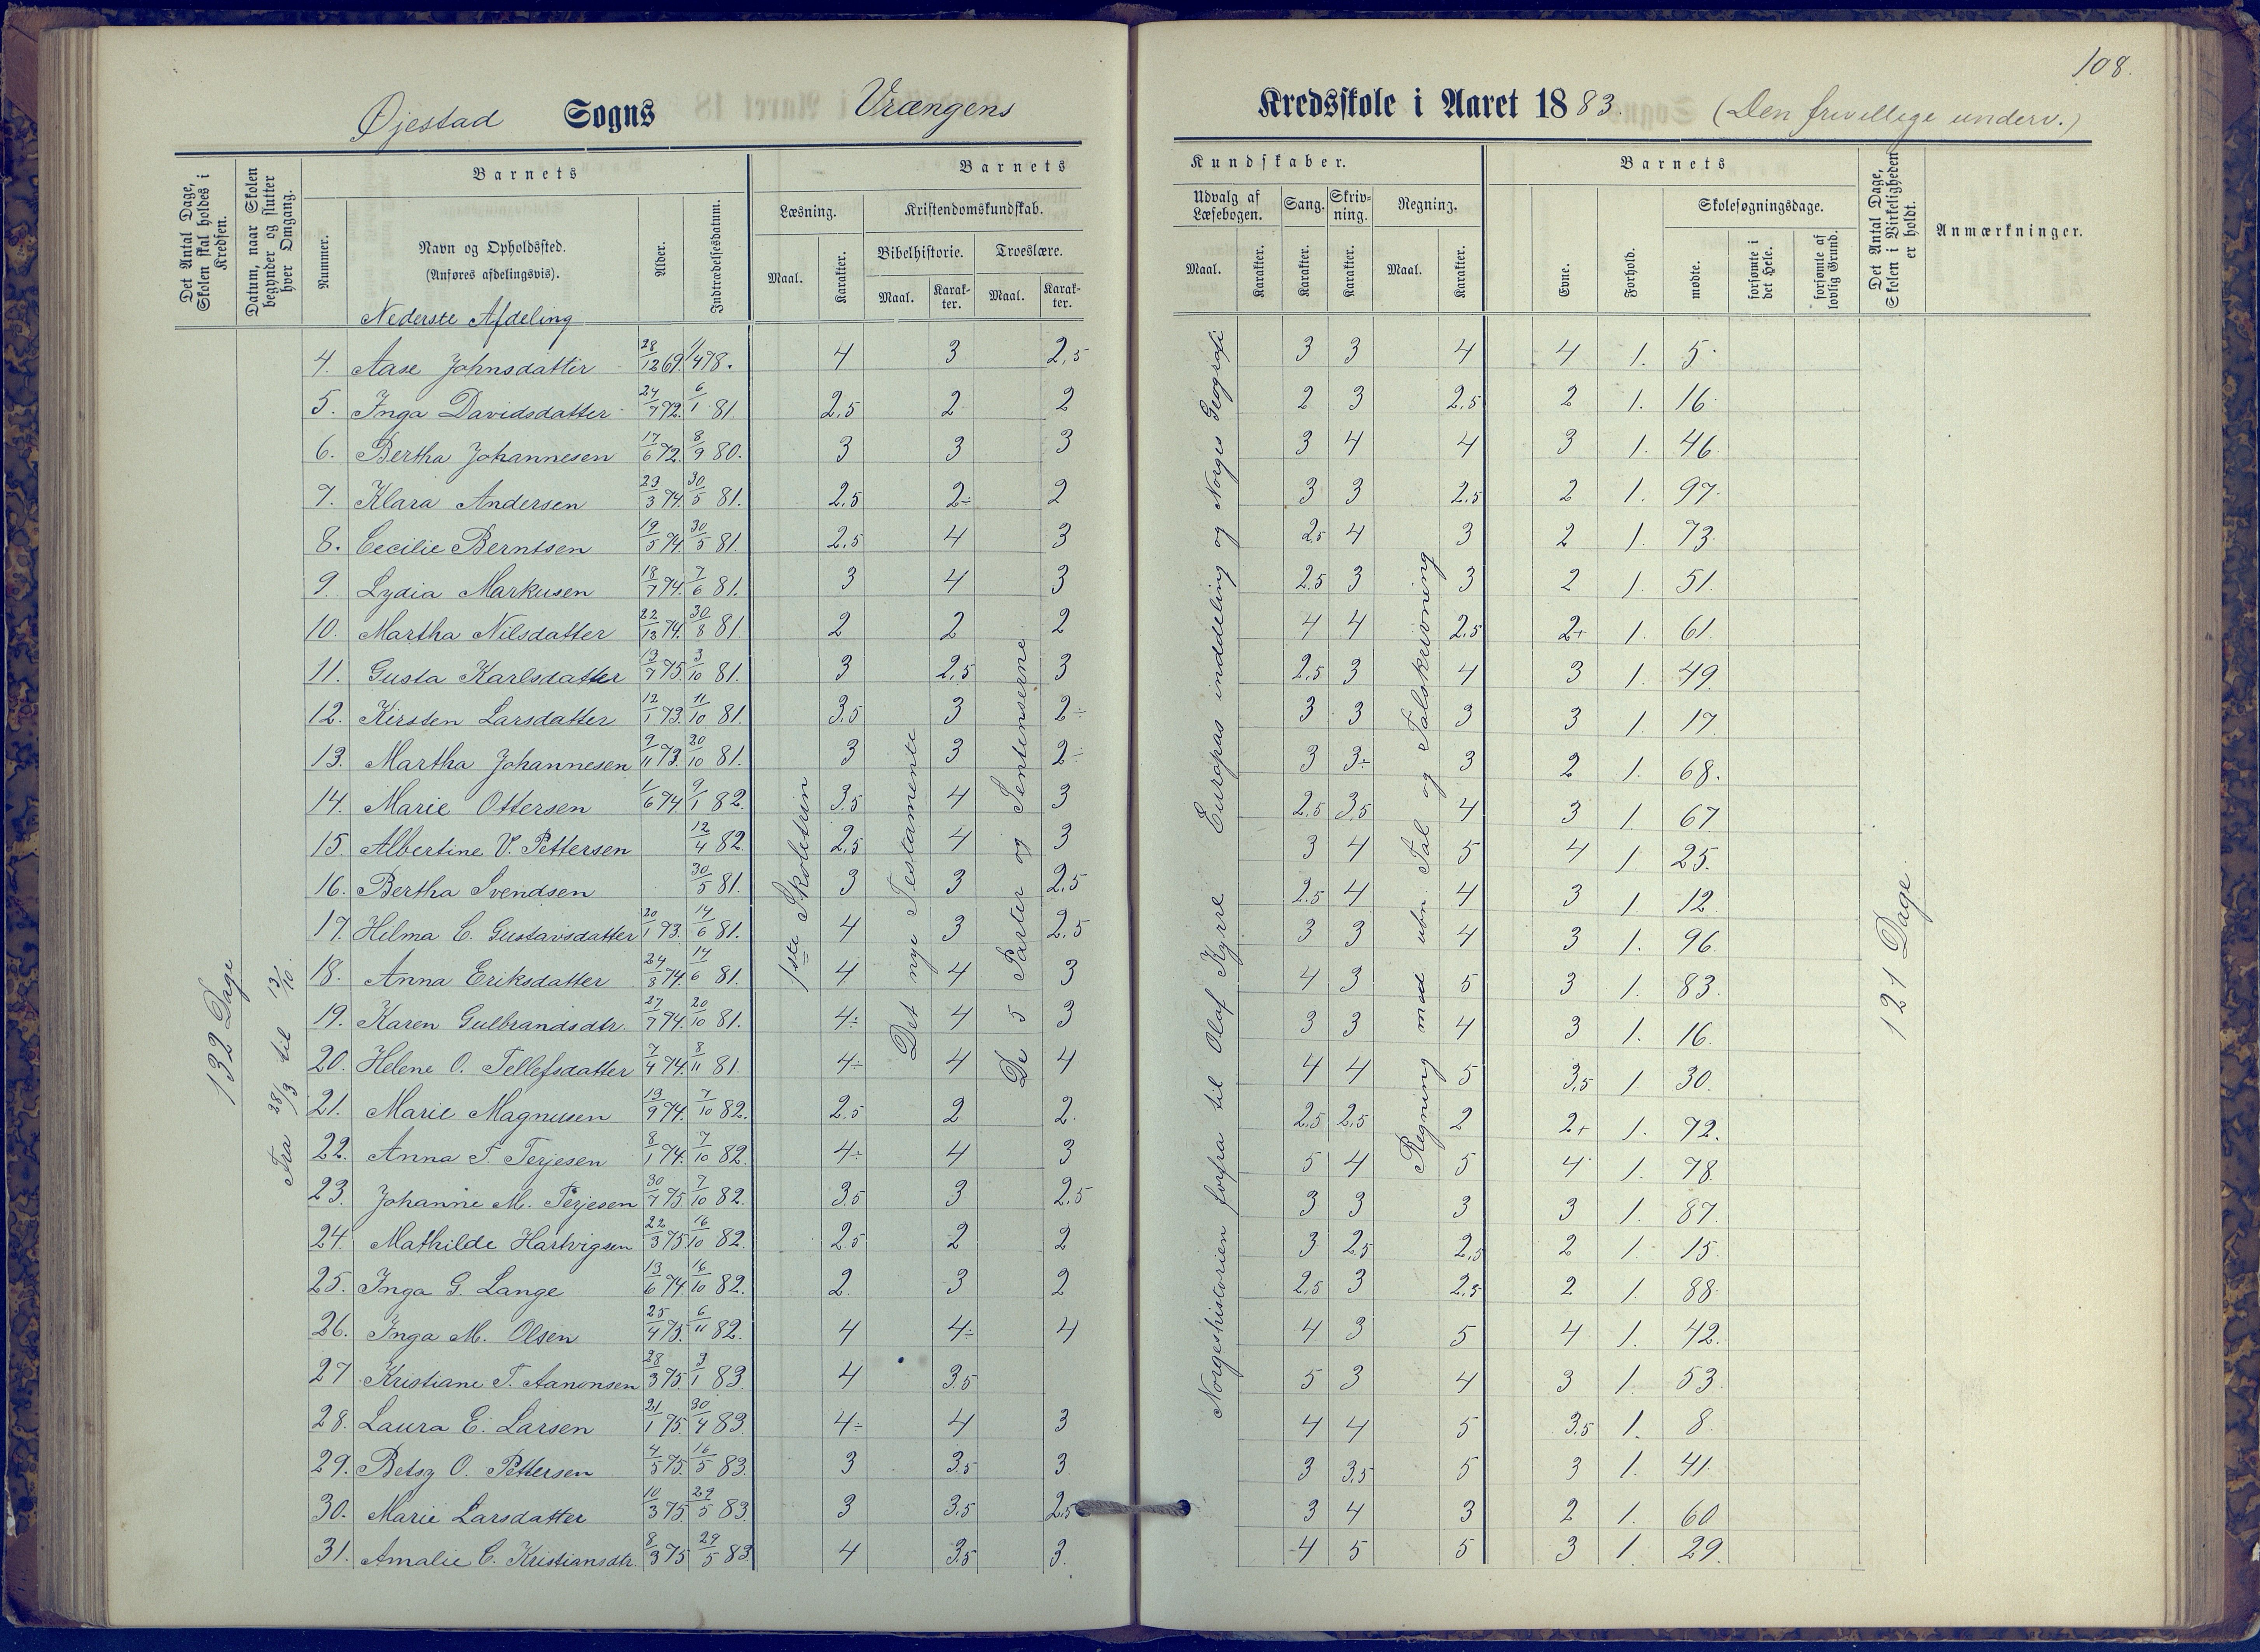 108.
Øjestad Sogns Vrængens Kredsskole i Aaret 1883. (Den frivellige underv.)
Det Antal Dage, Skolen skal holdes i Kredsen.
Datum, naar Skolen begynder og slutter hver Omgang.
Barnets
Nummer.
Navn og Opholdssted.
(Anføres afdelingsvis).
Alder.
Indtrædelsesdatum.
Barnets
Læsning.
Maal.
Karakter.
Kristendomskundskab.
Bibelhistorie.
Maal.
Karakter.
Troeslære.
Maal.
Karakter.
Kundskaber.
Udvalg af Læsebogen.
Maal.
Karakter.
Sang.
Karakter.
Skrivning.
Karakter.
Regning.
Maal.
Karakter.
Barnets
Evne.
Forhold.
Skolesøgningsdage.
mødte.
forsømte i det Hele.
forsømte af lovlig Grund.
Det Antal Dage, Skolen i Virkeligheden er holdt.
Anmærkninger.
Nederste Afdeling
132 Dage
Fra 28/3 til 13/10.
1ste Skoletrin
Det nye Testamente
De 5 Parter og Sentenserne
Norgeshistorien forfra til Olaf Kyrre Europas inddeling og Norges Geografi
Regning med ubn. Tal og Talskrivning
121 Dage
4. Aase Johnsdatter 28/12 69. 1/4 78. 4 3 2,5 3 3 4 4 1. 5.
5. Inga Davidsdatter 24/7 72. 6/1 81 2,5 2 2 2 3 2,5 2 1. 16.
6. Bertha Johannesen 17/6 72. 8/9 80. 3 3 3 3 4 4 3 1. 46.
7. Klara Andersen 29/3 74. 30/5 81. 2,5 2÷ 2 3 3 2,5 2 1. 97.
8. Cecilie Berntsen 19/5 74. 30/5 81. 2,5 4 3 2,5 4 3 2 1. 73.
9. Lydia Markusen 18/7 74. 7/6 81. 3 4 3 2,5 3 3 2 1. 51.
10. Martha Nilsdatter 22/12 74. 30/8 81. 2 2 2 4 4 2,5 2+ 1. 61.
11. Gusta Karlsdatter 13/7 75. 3/10 81. 3 2,5 3 2,5 3 4 3 1. 49.
12. Kirsten Larsdatter 12/1 73. 11/10 81. 3,5 3 2÷ 3 3 3 3 1. 17.
13. Martha Johannesen 9/11 73. 20/10 81. 3 3 2÷ 3 3÷ 3 2 1. 68.
14. Marie Ottersen 1/6 74. 9/1 82. 3,5 4 3 2,5 3,5 4 3 1. 67
15. Albertine V. Pettersen 12/4 82. 2,5 4 3 3 4 5 4 1 25.
16. Bertha Svendsen 30/5 81. 3 3 2,5 2,5 4 4 3 1. 12.
17. Helma C. Gustavsdatter 20/1 73. 14/6 81. 4 3 2,5 3 3 4 3 1. 96.
18. Anna Eriksdatter 24/8 74. 14/6 81. 4 4 3 4 3 5 3 1. 83.
19. Karen Gulbrandsdtr. 27/7 74. 20/10 81. 4÷ 4 3 3 3 4 3 1. 16.
20. Helene O. Tellefsdatter 7/4 74. 8/11 81. 4÷ 4 4 4 4 5 3,5 1. 30.
21. Marie Magnusen 13/9 74. 7/10 82. 2,5 2 2. 2,5 2,5 2 2+ 1. 72.
22. Anna T. Terjesen 8/1 74. 7/10 82. 4÷ 4 3 5 4 5 4 1. 78.
23. Johanne M. Terjesen 30/7 75. 7/10 82. 3,5 3 2,5 3 3 3 3 1. 87.
24. Mathilde Hartvigsen 22/3 75. 16/10 82. 2,5 2 2 3 2,5 2,5 2 1. 15.
25. Inga G. Lange 13/6 74. 16/10 82. 2. 3 2 2,5 3 2,5 2 1. 88.
26. Inga M. Olsen 25/4 75. 6/11 82. 4 4÷ 4 4 3 5 4 1. 42.
27 Kristiane T. Aanonsen 28/3 75. 3/1 83. 4 3,5 5 3 4 3 1. 53.
28. Laura E. Larsen 21/1 75. 30/4 83. 4÷ 4 3 4 4 5 3,5 1. 8.
29. Betsy O. Pettersen 4/5 75. 16/5 83. 3 3,5 3. 3 3,5 5 3 1. 41.
30. Marie Larsdatter 10/3 75. 29/5 83. 3 3,5 2,5 3 4 3 2 1. 60
31. Amalie C. Kristiansdtr. 8/3 75 29/5 83. 4 3,5 3. 4 5 5 3 1. 29.